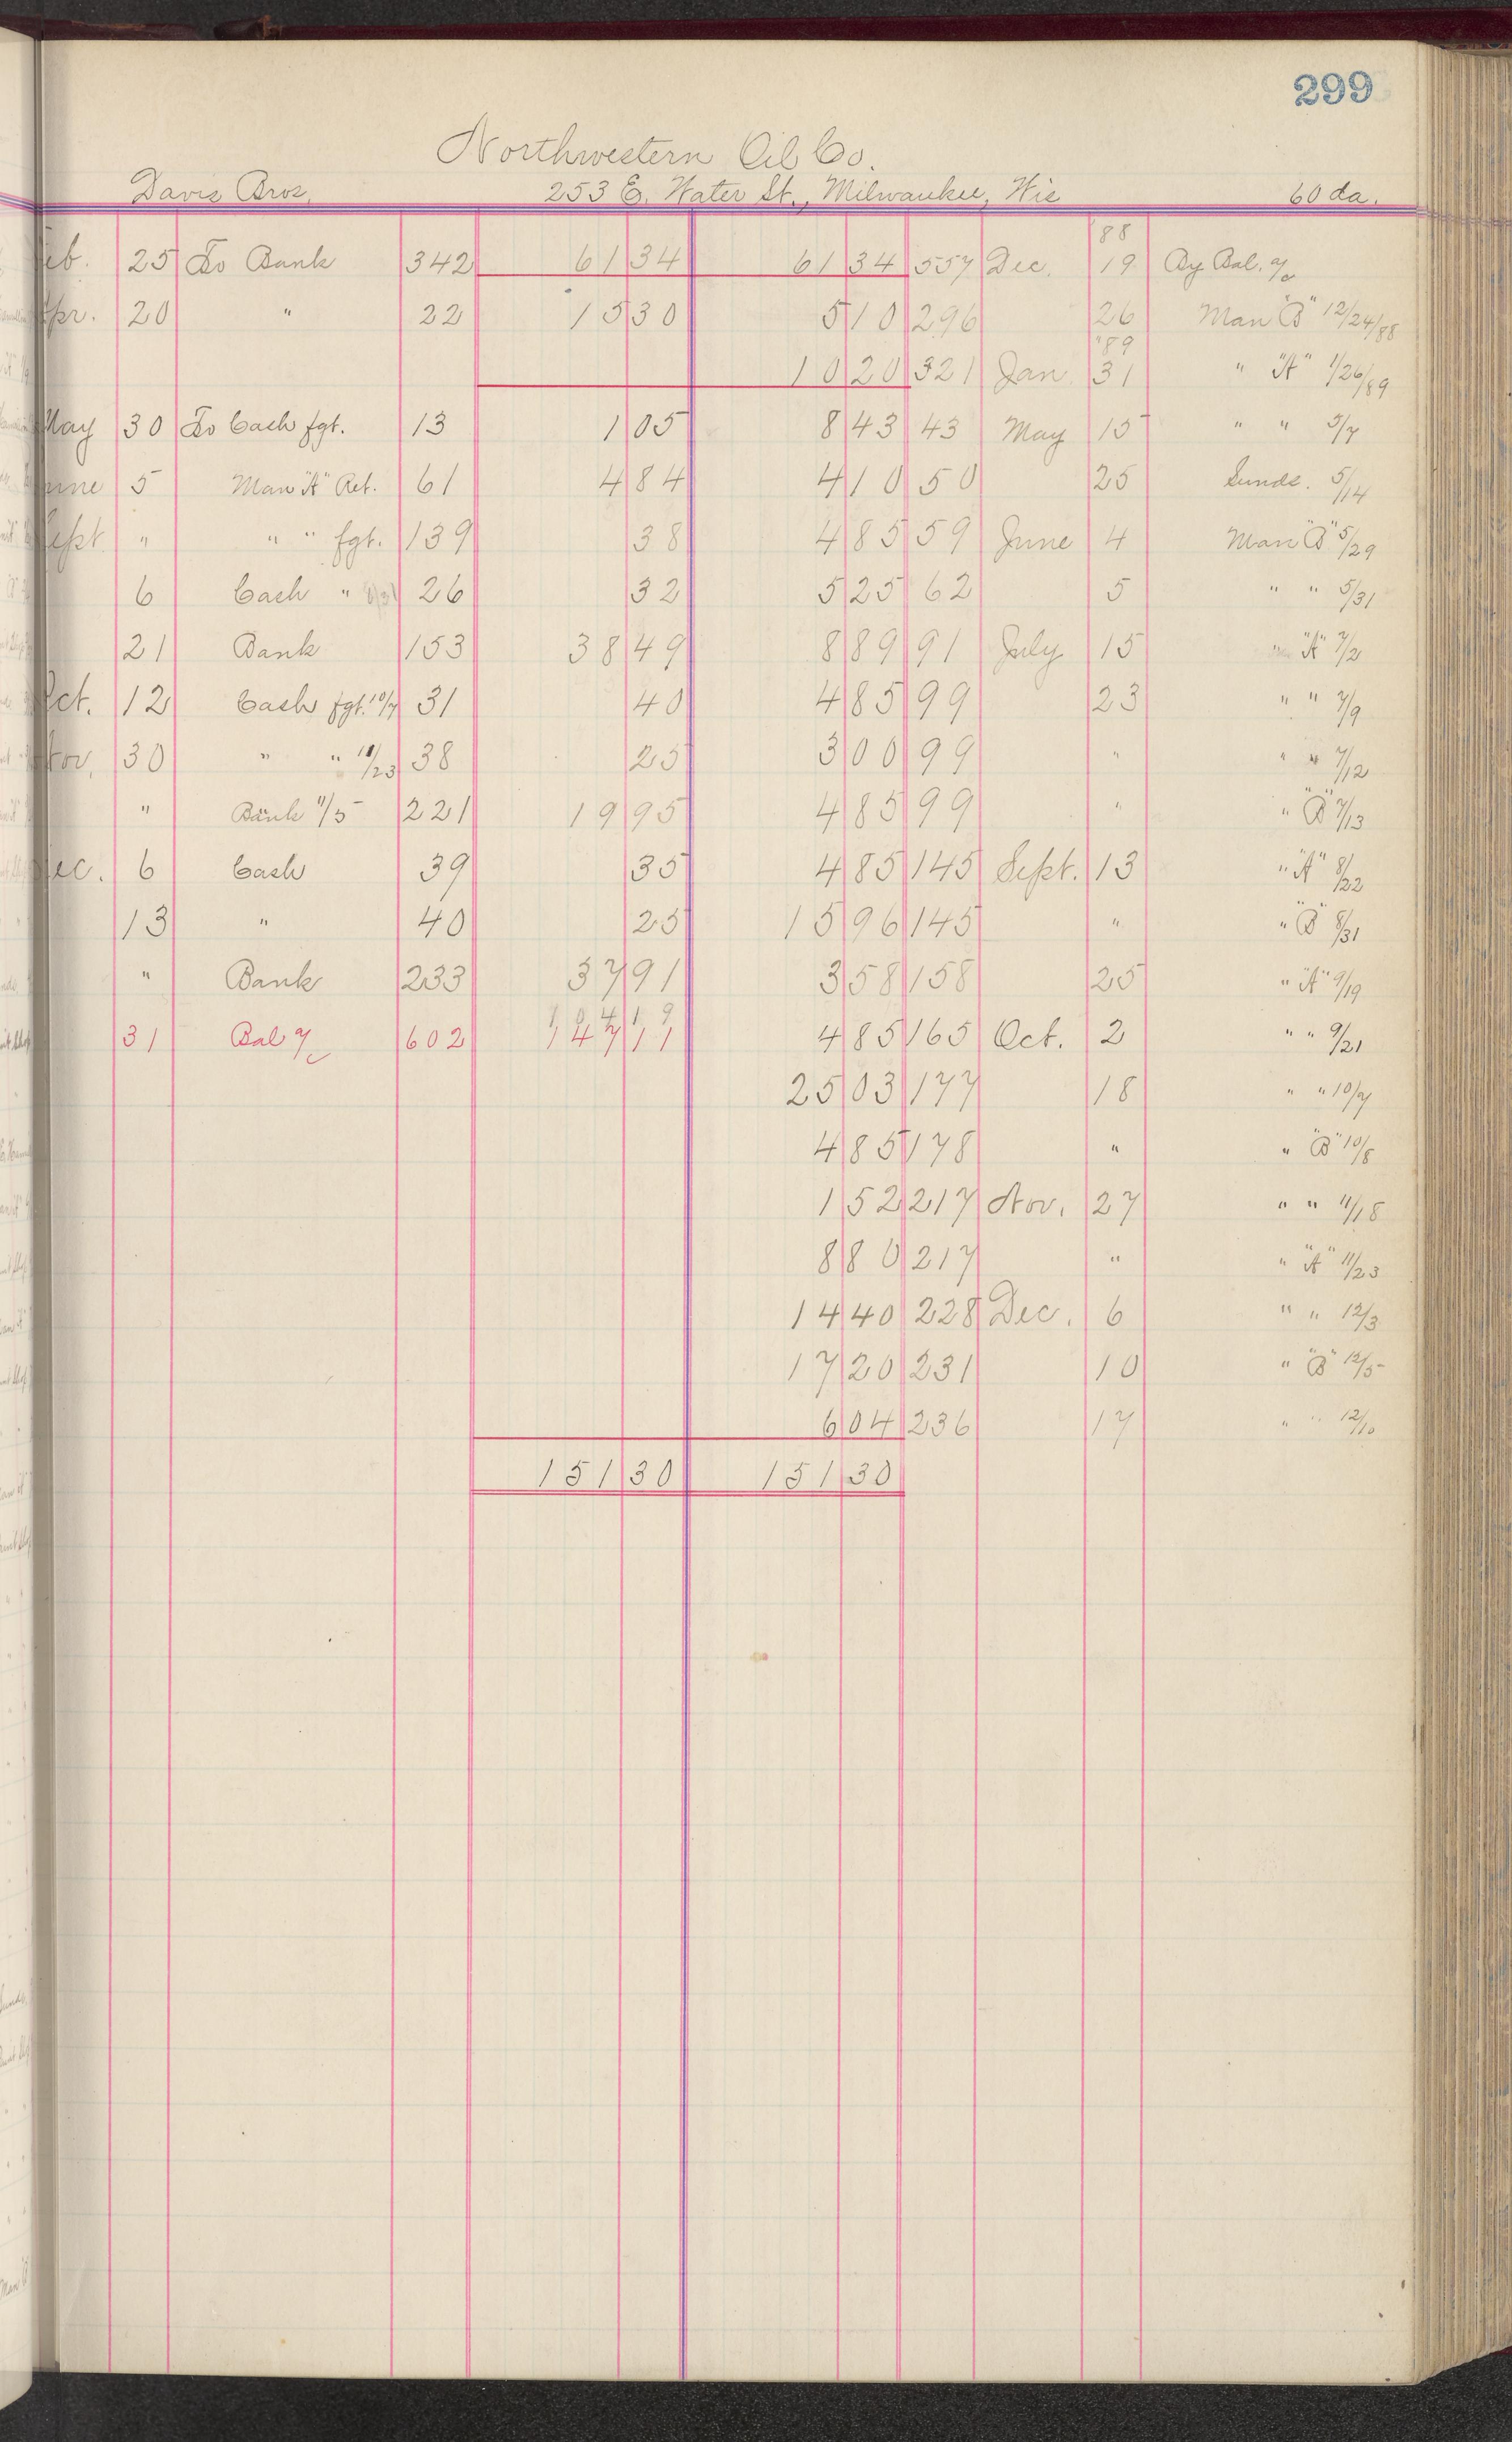 299
Northwestern Oil Co.
Davis Bros. 253 E. Water St., Milwaukee, Wis 60 da.
'88
eb. 25 To Bank 342 61 34 61 34 557 Dec. 19 By Bal. a/c
pr. 20 " 22 15 30 5 10 296 26 Man "B" 12/24/88
'89
10 20 321 Jan 31 " "A" 1/26/89
May 30 To Cash fgt. 13 1 05 8 43 43 May 15 " " 5/7
une 5 Man "A" Ret. 61 4 84 4 10 50 25 Sunds. 5/14
ept. " " " fgt. 139 38 4 85 59 June 4 Man "B" 5/29
6 Cash " 26 32 5 25 62 5 " " 5/31
21 Bank 153 38 49 8 89 91 July 15 " "A" 7/2
ct. 12 Cash fgt. 10/7 31 40 4 85 99 23 " " 7/9
ov. 30 " " 11/23 38 25 3 00 99 " " " 7/12
" Bank 11/5 221 19 95 4 85 99 " " "B" 7/13
ec. 6 Cash 39 35 4 85 145 Sept. 13 " "A" 8/22
13 " 40 25 15 96 145 " " "B" 8/31
" Bank 233 37 91 3 58 158 25 " "A" 9/19
31 Bal a/c 602 4 85 165 Oct. 2 " " 9/21
25 03 177 18 " " 10/7
4 85 178 " " "B" 10/8
1 52 217 Nov. 27 " " 11/18
8 80 217 " " "A" 11/23
14 40 228 Dec. 6 " " 12/3
17 20 231 10 " "B" 12/5
6 04 236 17 " " 12/10
151 30 151 30